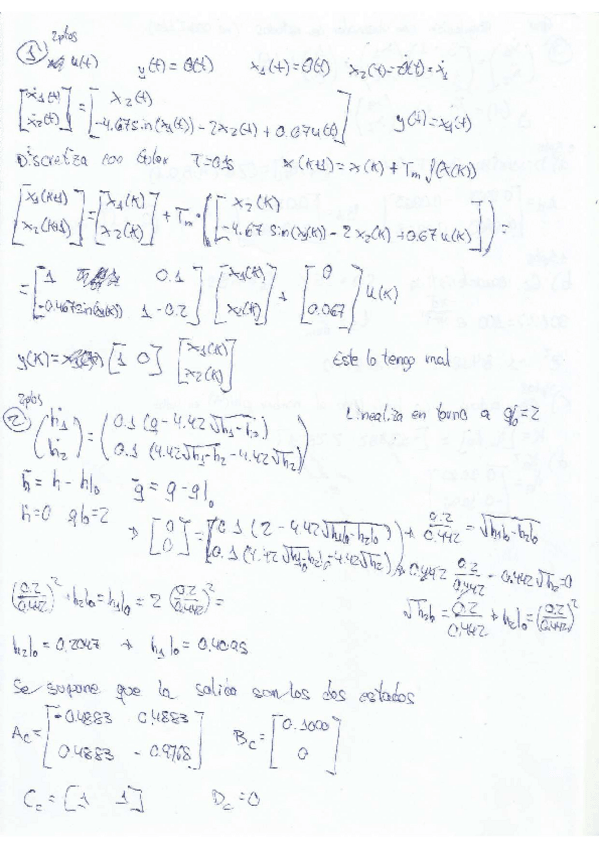 2ptos
① u(t) y(t) = θ(t) x1(t) = θ(t) x2(t) = θ̇(t) = ẋ1
[ẋ1(t) ẋ2(t)] = [x2(t) -4.67sin(x1(t)) - 2x2(t) + 0.67u(t)] y(t) = x1(t)
Discretiza con Euler T=0.1s x(k+1) = x(k) + Tm f(x(k))
[x1(k+1) x2(k+1)] = [x1(k) x2(k)] + Tm · ([x2(k) -4.67 sin(x1(k)) - 2x2(k) + 0.67 u(k)]) =
= [1 0.1 -0.467sin(x1(k)) 1-0.2] [x1(k) x2(k)] + [0 0.067] u(k)
y(k) = [1 0] [x1(k) x2(k)] Este lo tengo mal
2ptos
② (ḣ1 ḣ2) = (0.1 (q - 4.42√h1-h2) 0.1 (4.42√h1-h2 - 4.42√h2)) Linealiza en torno a q|0=2
h̄ = h - h|0 q̄ = q - q|0
ḣ=0 q|0=2 → [0 0] = [0.1 (2 - 4.42√h1|0-h2|0) 0.1 (4.42√h1|0-h2|0 - 4.42√h2)] → 0.2/0.442 = √h1|0-h2|0
→ 0.442 0.2/0.442 - 0.442√h2=0
(0.2/0.442)² + h2|0 = h1|0 = 2 (0.2/0.442)² = √h2|0 = 0.2/0.442 → h2|0 = (0.2/0.442)²
h2|0 = 0.2047 → h1|0 = 0.4095
Se supone que la salida son los dos estados
Ac = [-0.4883 0.4883 0.4883 -0.9768] Bc = [0.1000 0]
Cc = [1 1] Dc = 0